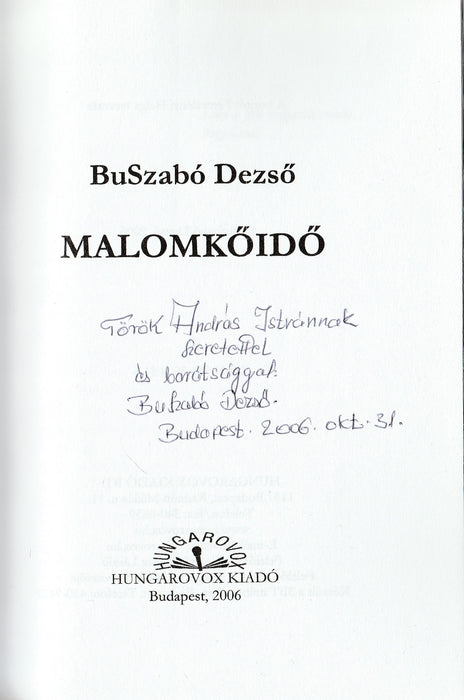 BuSzabó Dezső
MALOMKŐIDŐ
Török András Istvánnak
szeretettel
és barátsággal:
BuSzabó Dezső.
Budapest. 2006. okt. 31.
HUNGAROVOX
HUNGAROVOX KIADÓ
Budapest, 2006